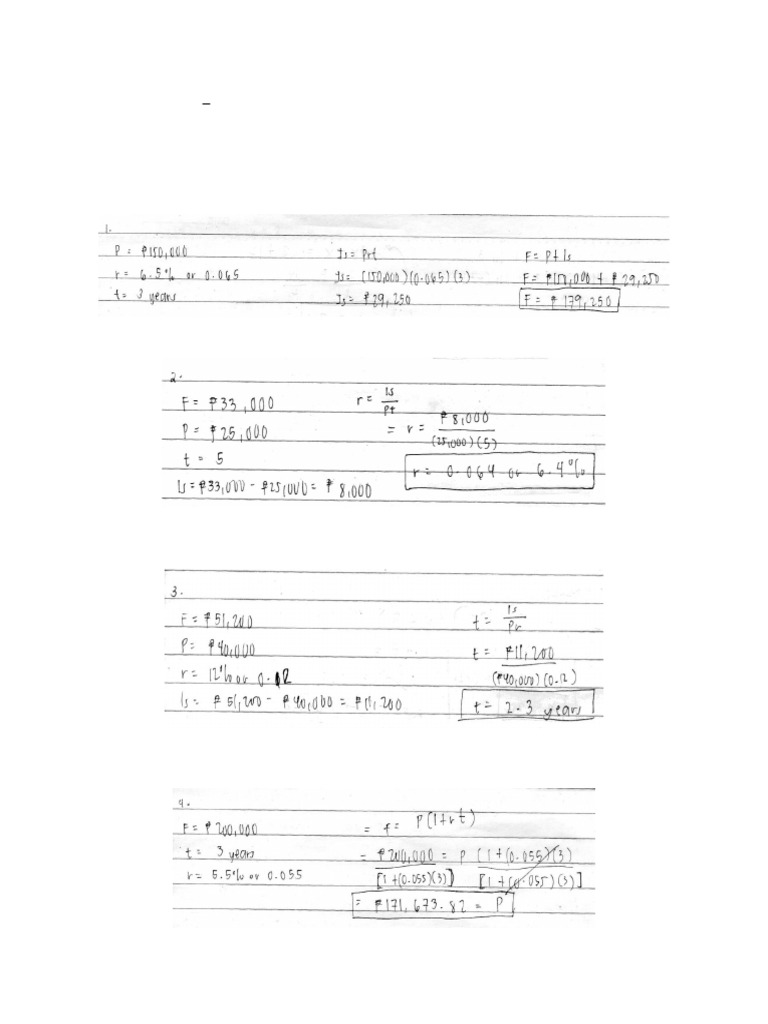 1.
P = ₱150,000
r = 6.5% or 0.065
t = 3 years
Is = Prt
Is = (150,000)(0.065)(3)
Is = ₱29,250
F = P + Is
F = ₱150,000 + ₱29,250
F = ₱179,250
2.
F = ₱33,000
P = ₱25,000
t = 5
Is = ₱33,000 - ₱25,000 = ₱8,000
r = Is
Pt
= r = ₱8,000
(25,000)(5)
r = 0.064 or 6.4%
3.
F = ₱51,200
P = ₱40,000
r = 12% or 0.12
Is = ₱51,200 - ₱40,000 = ₱11,200
t = Is
Pr
t = ₱11,200
(₱40,000)(0.12)
t = 2.3 years
4.
F = ₱200,000
t = 3 years
r = 5.5% or 0.055
= F = P(1+rt)
= ₱200,000 = P (1+(0.055)(3)
[1+(0.055)(3)] [1+(0.055)(3)]
= ₱171,673.82 = P